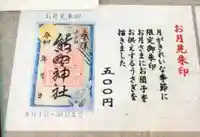 お月見朱印
月がきれいな季節に
限定御朱印
お月さまにお団子を
お供えするうさぎを
描きました
五〇〇円
お月見朱印
奉拝
熊野神社
令和 年 月 日